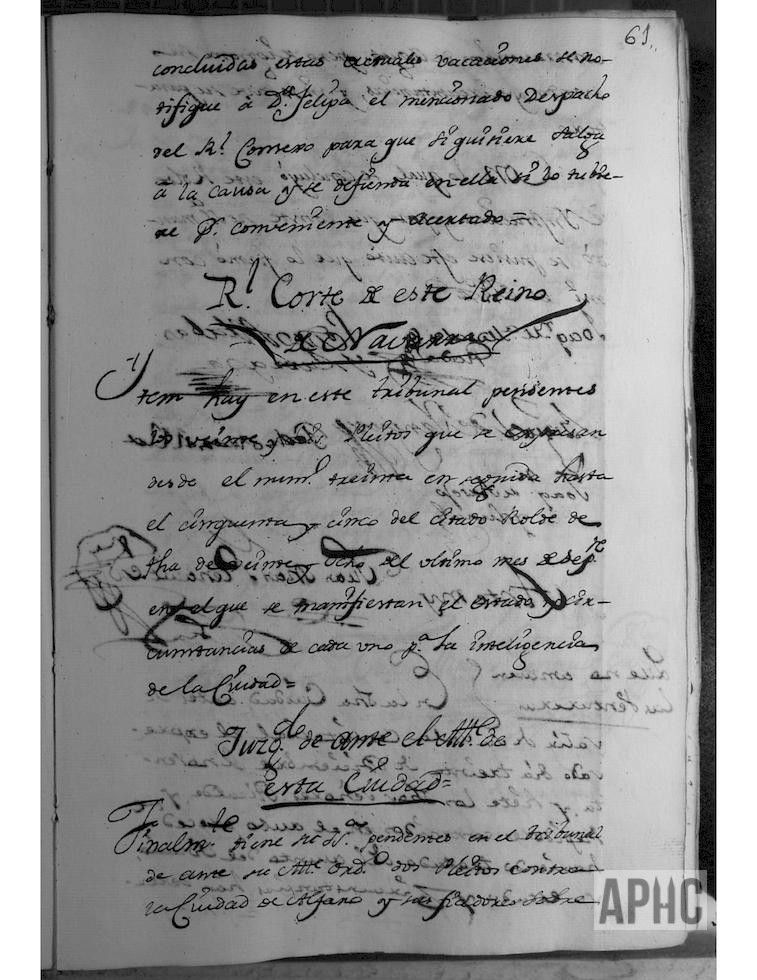 61.
concluidas estas actuales vacaciones se no-
tifique á D.ª Felipa el mencionado Despacho
del R.l Consexo para que si quisiere Salga
á la causa y se defienda en ella si lo tubie-
re p.r conveniente y acertado=
R.l Corte de este Reino
de Navarra
Ytem hay en este tribunal pendentes
veinte y seis Pleitos que se expresan
desde el num.o treinta en seguida hasta
el cinquenta y cinco del citado Rolde de
tha de veinte y ocho del ultimo mes de Sep.re
en el que se manifiestan el estado, y cir-
cunstancias de cada uno p.a la inteligencia
de la Ciudad=
Juzg.do de ante el Alc.e de
esta Ciudad=
Finalm.te tiene su S.a pendentes en el tribunal
de ante su Alc.e ord.o dos Pleitos contra
la Ciudad de Alfaro y sus fiadores sobre
APHC